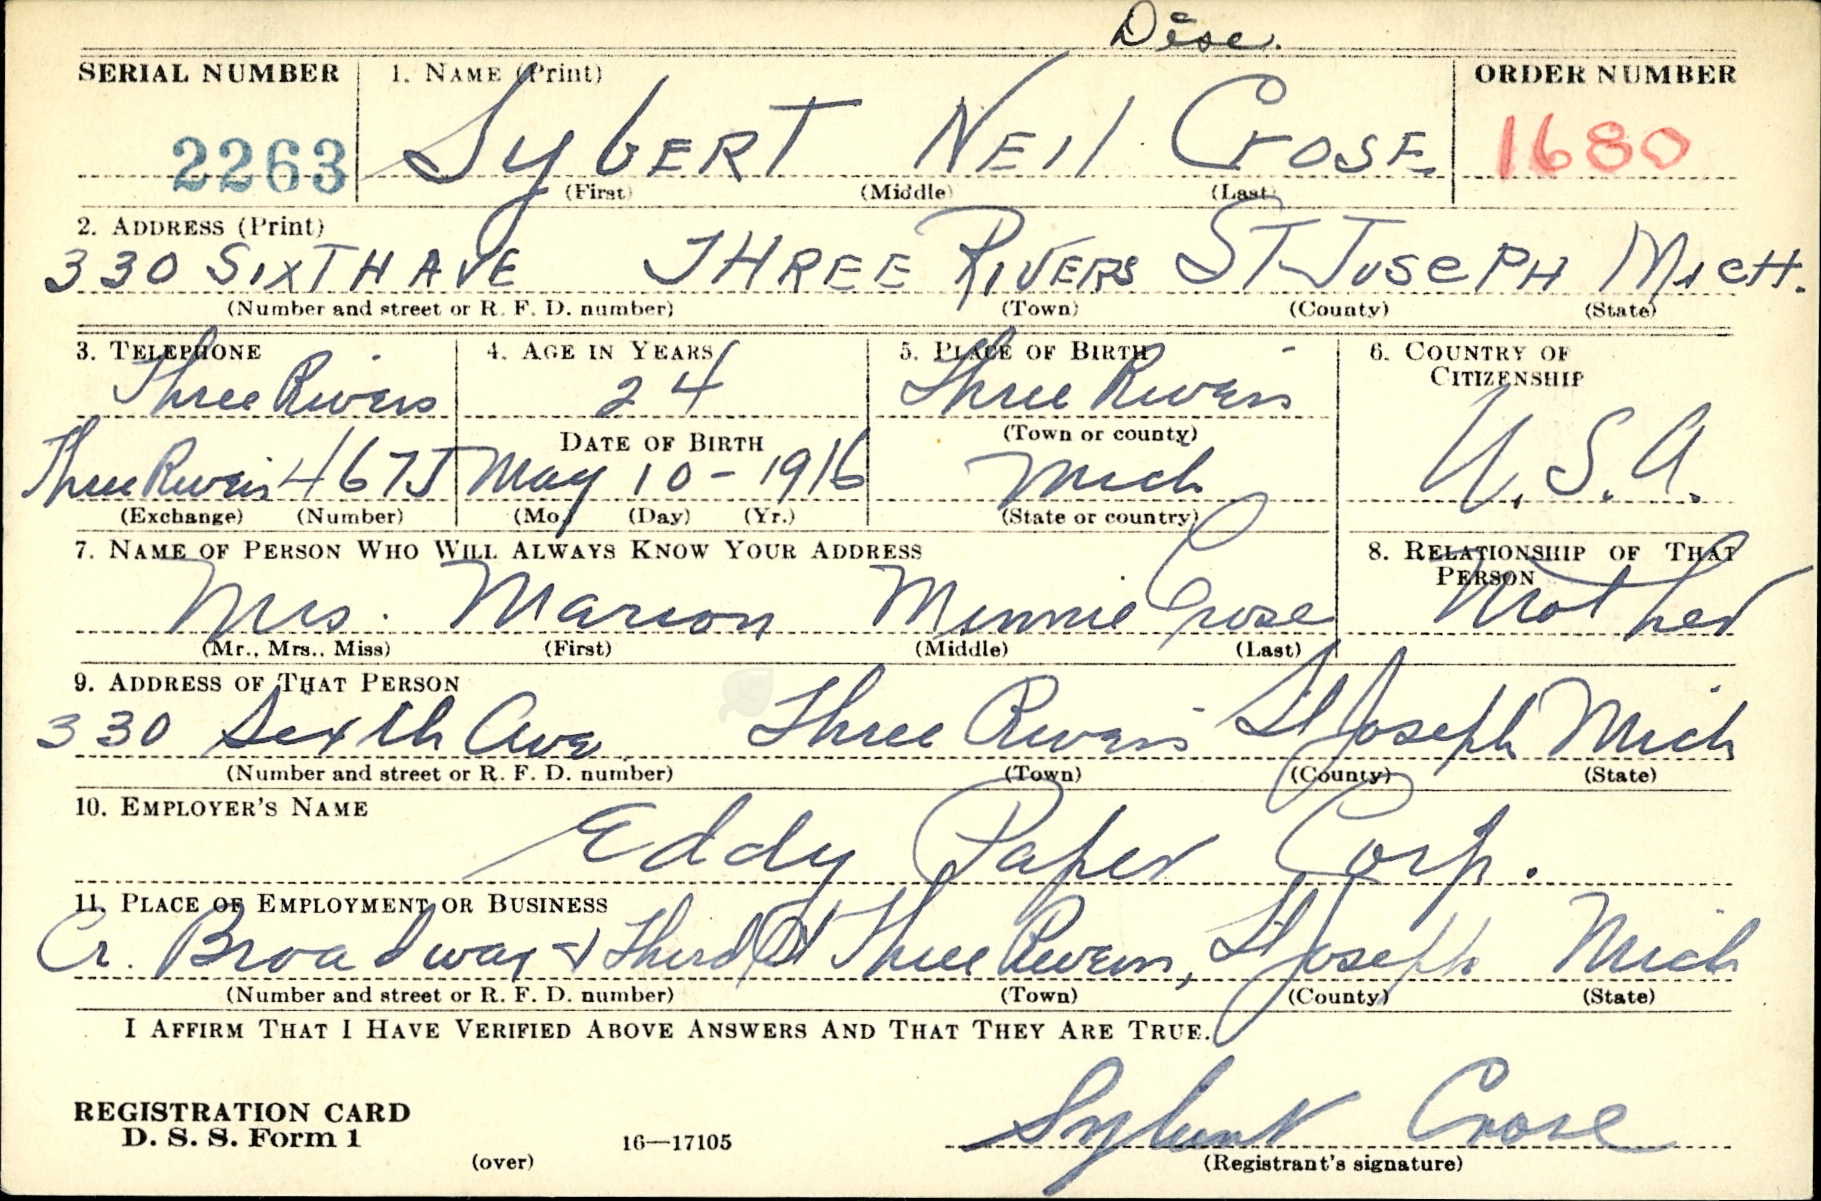 Disc.
SERIAL NUMBER 1. NAME (Print) ORDER NUMBER
2263 Sybert Neil Crose 1680
(First) (Middle) (Last)
2. ADDRESS (Print)
330 SIXTH AVE THREE RIVERS ST JOSEPH MICH.
(Number and street or R. F. D. number) (Town) (County) (State)
3. TELEPHONE 4. AGE IN YEARS 5. PLACE OF BIRTH 6. COUNTRY OF CITIZENSHIP
Three Rivers 24 Three Rivers
DATE OF BIRTH (Town or county)
Three Rivers 467J May 10-1916 Mich U.S.A.
(Exchange) (Number) (Mo.) (Day) (Yr.) (State or country)
7. NAME OF PERSON WHO WILL ALWAYS KNOW YOUR ADDRESS 8. RELATIONSHIP OF THAT PERSON
Mrs. Marion Minnie Crose Mother
(Mr., Mrs., Miss) (First) (Middle) (Last)
9. ADDRESS OF THAT PERSON
330 Sixth Ave Three Rivers St Joseph Mich
(Number and street or R. F. D. number) (Town) (County) (State)
10. EMPLOYER'S NAME
Eddy Paper Corp.
11. PLACE OF EMPLOYMENT OR BUSINESS
Cr. Broadway & Third St Three Rivers, St Joseph Mich
(Number and street or R. F. D. number) (Town) (County) (State)
I AFFIRM THAT I HAVE VERIFIED ABOVE ANSWERS AND THAT THEY ARE TRUE.
REGISTRATION CARD
D. S. S. Form 1 Sybert Crose
(over) 16—17105 (Registrant's signature)